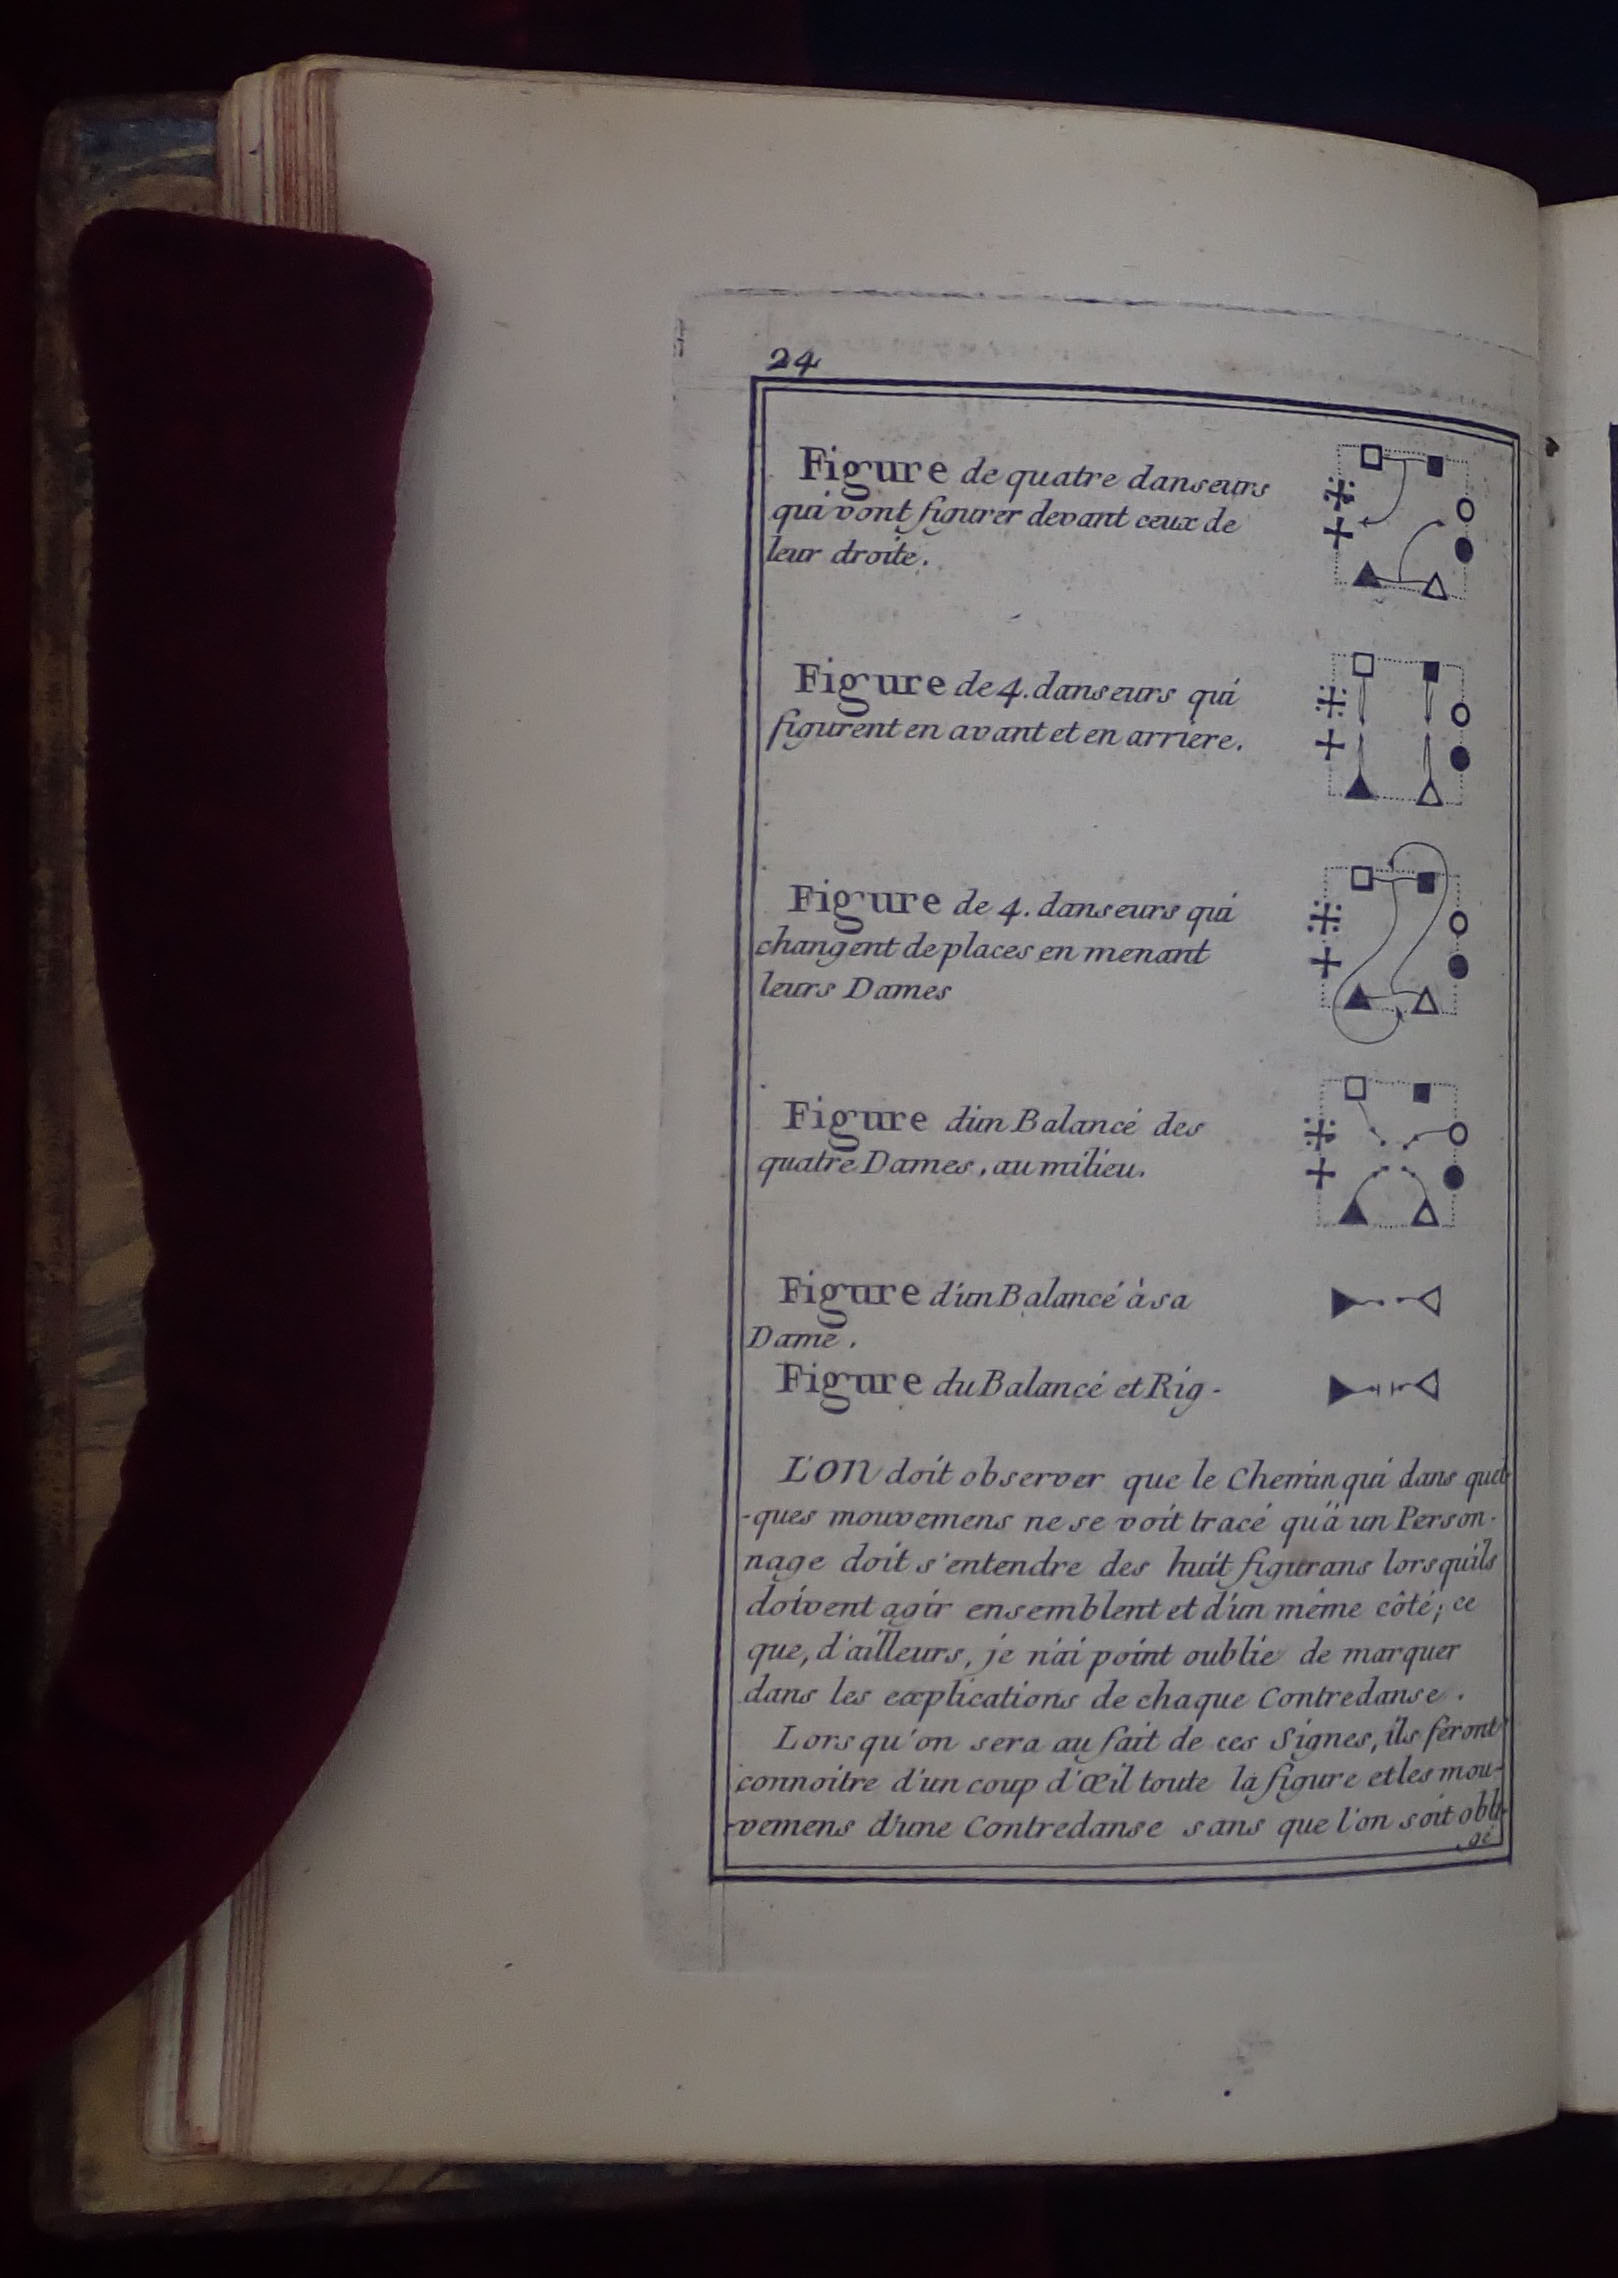 24
Figure de quatre danseurs
qui vont figurer devant ceux de
leur droite.
Figure de 4. danseurs qui
figurent en avant et en arriere.
Figure de 4. danseurs qui
changent de places en menant
leurs Dames
Figure d'un Balancé des
quatre Dames, au milieu.
Figure d'un Balancé à sa
Dame.
Figure du Balancé et Rig-
L'ON doit observer que le Chemin qui dans quel-
-ques mouvemens ne se voit tracé qu'à un Person-
nage doit s'entendre des huit figurans lorsqu'ils
doivent agir ensemblent et d'un même côté; ce
que, d'ailleurs, je n'ai point oublié de marquer
dans les explications de chaque Contredanse.
Lorsqu'on sera au fait de ces Signes, ils feront
connoitre d'un coup d'œil toute la figure et les mou-
-vemens d'une Contredanse sans que l'on soit obli-
gé